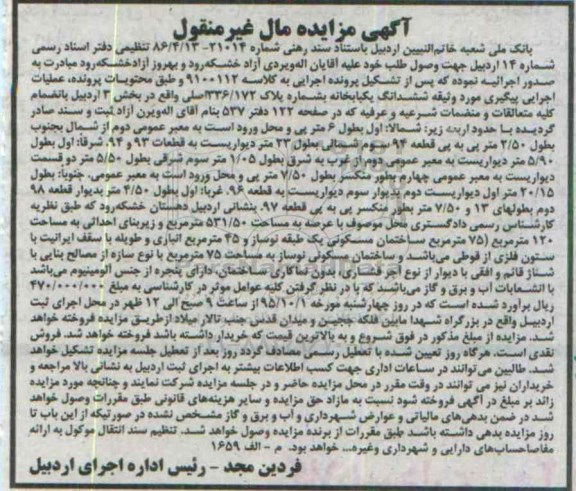 آگهی مزایده مال غیرمنقول
بانک ملی شعبه خاتم‌النبیین اردبیل باستناد سند رهنی شماره ۲۱۰۱۴- ۸۶/۴/۱۳ تنظیمی دفتر اسناد رسمی
شماره ۱۴ اردبیل جهت وصول طلب خود علیه آقایان اله‌ویردی آزاد خشکه‌رود و بهروز آزادخشکه‌رود مبادرت به
صدور اجرائیه نموده که پس از تشکیل پرونده اجرایی به کلاسه ۹۱۰۰۱۱۲ و طبق محتویات پرونده، عملیات
اجرایی پیگیری مورد وثیقه ششدانگ یکبابخانه بشماره پلاک ۳۳۶/۱۷۲اصلی واقع در بخش ۳ اردبیل بانضمام
کلیه متعالقات و منضمات شرعیه و عرفیه که در صفحه ۱۲۲ دفتر ۵۳۷ بنام آقای اله‌ویرن آزاد ثبت و سند صادر
گردیده با حدود اربعه زیر: شمالا: اول بطول ۶ متر پی و محل ورود است به معبر عمومی دوم از شمال بجنوب
بطول ۲/۵۰ متر پی به پی قطعه ۹۴ سوم شمالی بطول ۲۳ متر دیواریست به قطعات ۹۳ و ۹۴. شرقا: اول بطول
۵/۹۰ متر دیواریست به معبر عمومی دوم از غرب به شرق بطول ۱/۰۵ متر سوم شرقی بطول ۵/۵۰ متر دو قسمت
دیواریست به معبر عمومی چهارم بطور منکسر بطول ۷/۵۰ متر پی و محل ورود است به معبر عمومی. جنوبا: بطول
۲۰/۱۵ متر اول دیواریست دوم بدیوار سوم دیواریست به قطعه ۹۶. غربا: اول بطول ۴/۵۰ متر بدیوار قطعه ۹۸
دوم بطولهای ۱۳ و ۷/۵۰ متر بطور منکسر پی به پی قطعه ۹۷. بنشانی اردبیل دهستان خشکه‌رود که طبق نظریه
کارشناس رسمی دادگستری محل موصوف با عرصه به مساحت ۵۳۱/۵۰ مترمربع و زیربنای احداثی به مساحت
۱۲۰ مترمربع (۷۵ مترمربع ساختمان مسکونی یک طبقه نوساز و ۴۵ مترمربع انباری و طویله با سقف ایرانیت با
ستون فلزی از قوطی می‌باشد و ساختمان مسکونی نوساز به مساحت ۷۵ مترمربع با نوع سازه از مصالح بنایی با
شناژ قائم و افقی با دیوار از نوع آجر فشاری، بدون نماکاری ساختمان، دارای پنجره از جنس آلومینیوم می‌باشد
با انشعابات آب و برق و گاز می‌باشند که با در نظر گرفتن کلیه عوامل موثر در کارشناسی به مبلغ ۴۷۰/۰۰۰/۰۰۰
ریال برآورد شده است که در روز چهارشنبه مورخه ۹۵/۱۰/۱ از ساعت ۹ صبح الی ۱۲ ظهر در محل اجرای ثبت
اردبیل واقع در بزرگراه شهدا مابین فلکه ججین و میدان قدس جنب تالار میلاد ازطریق مزایده فروخته خواهد
شد. مزایده از مبلغ مذکور در فوق شروع و به بالاترین قیمت که خریدار داشته باشد فروخته خواهد شد. فروش
نقدی است. هرگاه روز تعیین شده با تعطیل رسمی مصادف گردد روز بعد از تعطیل جلسه مزایده تشکیل خواهد
شد. طالبین می‌توانند در ساعات اداری جهت کسب اطلاعات بیشتر به اجرای ثبت اردبیل به نشانی بالا مراجعه و
خریداران نیز می توانند در وقت مقرر در محل مزایده حاضر و در جلسه مزایده شرکت نمایند و چنانچه مورد مزایده
زائد بر مبلغ در آگهی فروخته شود نسبت به مازاد حق مزایده و سایر هزینه‌های قانونی طبق مقررات وصول خواهد
شد در ضمن بدهی‌های مالیاتی و عوارض شهرداری و آب و برق و گاز مشخص نشده در صورتیکه از این باب تا
روز مزایده بدهی داشته باشد طبق مقررات از برنده مزایده وصول خواهد شد. تنظیم سند انتقال موکول به ارائه
مفاصاحساب‌های دارایی و شهرداری وغیره... خواهد بود. م - الف ۱۶۵۹
فردین مجد - رئیس اداره اجرای اردبیل